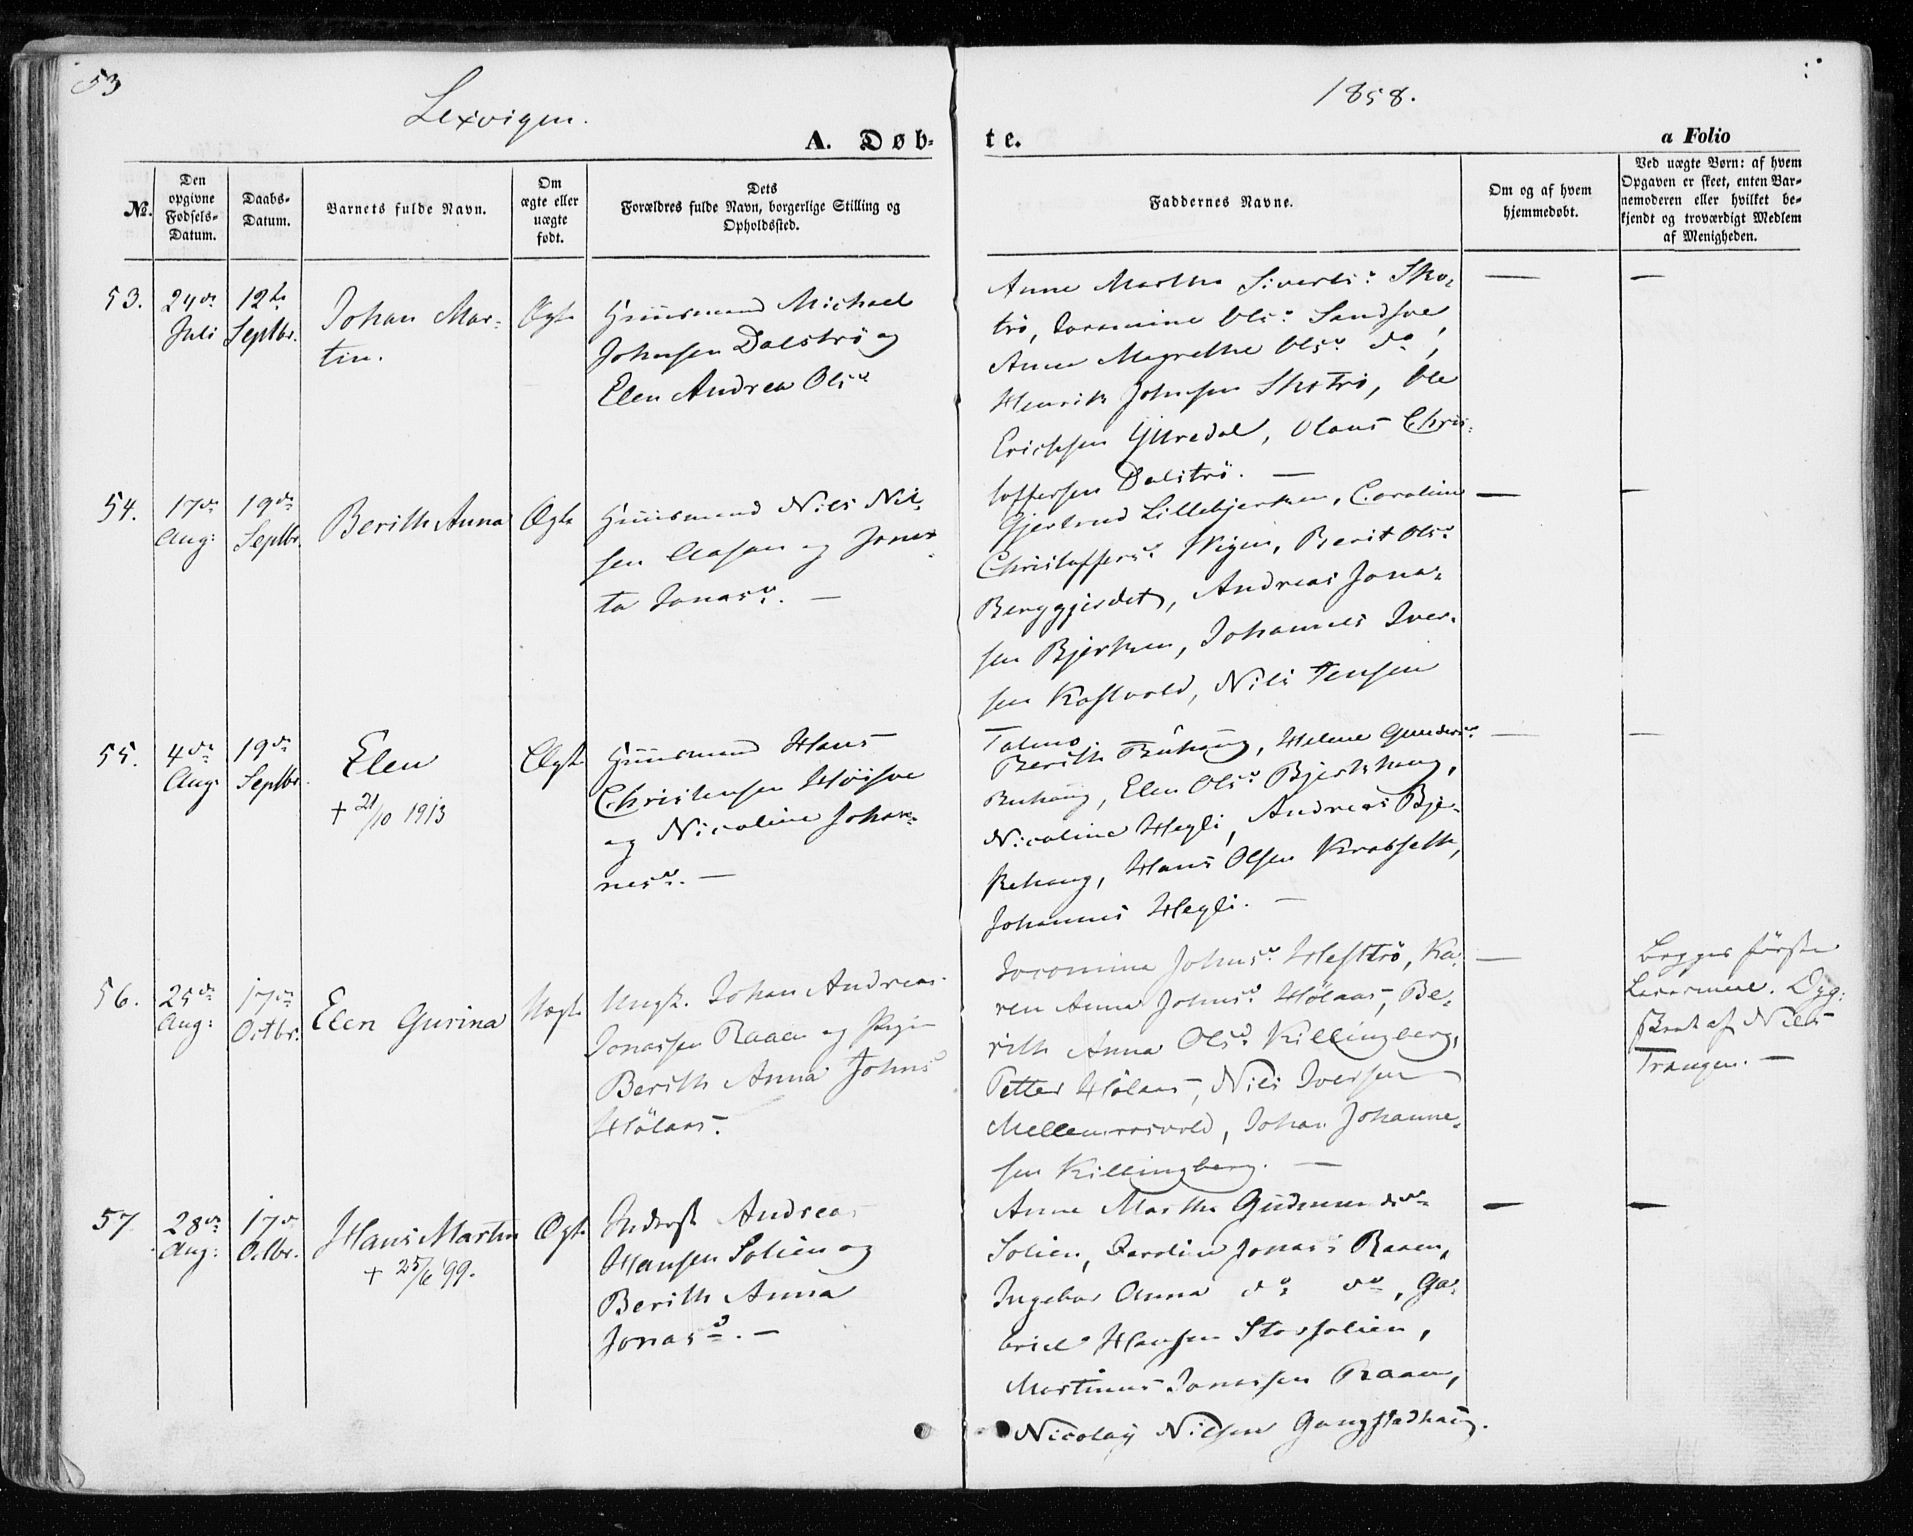 53
Lexvigen.
1858.
A. Døb-
te.
a Folio
No.
Den
opgivne
Fødsels-
Datum.
Daabs-
Datum.
Barnets fulde Navn.
Om
ægte eller
uægte
født.
Dets
Forældres fulde Navn, borgerlige Stilling og
Opholdssted.
Faddernes Navne.
Om og af hvem
hjemmedøbt.
Ved uægte Børn: af hvem
Opgaven er skeet, enten Bar-
nemoderen eller hvilket be-
kjendt og troværdigt Medlem
af Menigheden.
53.
24de
Juli
12te
Septbr.
Johan Mar-
tin.
Ægte
Huusmand Michael
Johnsen Dalstrø og
Elen Andrea Olsd
Anne Martha Siverts: Sko-
trø, Joramine Ols: Sandsve,
Anne Magrethe Olsd do,
Henrik Johnsen Skotrø, Ole
Erichsen Yttredal, Olaus Chris-
toffersen Dalstrø. —
—
—
54.
17de
Aug:
19de
Septbr.
Berith Anna
Ægte
Huusmand Nils Nil-
sen Aasan og Jonet-
ta Jonasd. —
Gjertrud Lillebjerken, Caroline
Christoffersd Vigen, Berit Olsd
Berggjerdet, Andreas Jona-
sen Bjerken, Johannes Iver-
sen Kastvold, Nils Jensen
Talmo.
—
—
55.
4de
Aug:
19de
Septbr.
Elen
+ 21/10 1913
Ægte
Huusmand Hans
Christensen Høisve
og Nicoline Johan-
nesd. —
Berith Buhaug, Helene Gundersd
Buhaug, Elen Olsd Bjerkehaug,
Nicoline Hegli, Andreas Bje-
kehaug, Hans Olsen Krabseth,
Johannes Hegli. —
—
—
56.
25de
Aug:
17de
Octbr.
Elen Gurina
Uægte
Ungk. Johan Andreas
Jonassen Raaen og Pige
Berith Anna Johnsd
Hølaas.
Joramine Johnsd Hesttrø, Ka-
ren Anna Johnsd Hølaas, Be-
rith Anna Olsd Killingberg,
Petter Hølaas, Nils Iversen
Mellemrosvold, Johan Johanne-
sen Killingberg. —
—
Begges første
Leiermaal. Opg:
skeet af Nils
Trangen. —
57.
28de
Aug:
17de
Octbr.
Hans Martin
+ 25/6 99.
Ægte
Inderst Andreas
Hansen Solien og
Berith Anna
Jonasd. —
Anne Martha Gudmundsd
Solien, Caroline Jonasd Raaen,
Ingebor Anna do do, Ga-
briel Hansen Storsolien,
Martinus Jonassen Raaen,
Nicolay Nilsen Gangstadhaug.
—
—